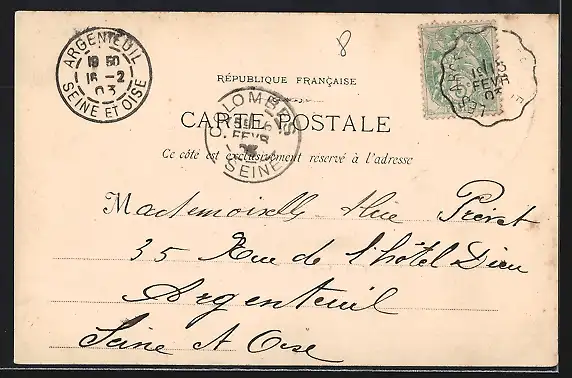 8
ARGENTEUIL
19 50
16 -2
03
SEINE ET OISE
RÉPUBLIQUE FRANÇAISE
CARTE POSTALE
Ce côté est exclusivement reservé à l'adresse
COLOMBES
FEVR
SEINE
15
FEVR
03
Mademoiselle Prevet
35 Rue de l'hôtel Dieu
Argenteuil
Seine et Oise